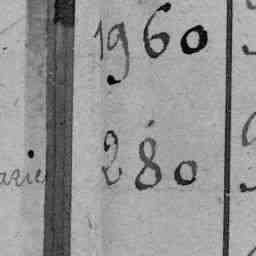 1960
arie 280